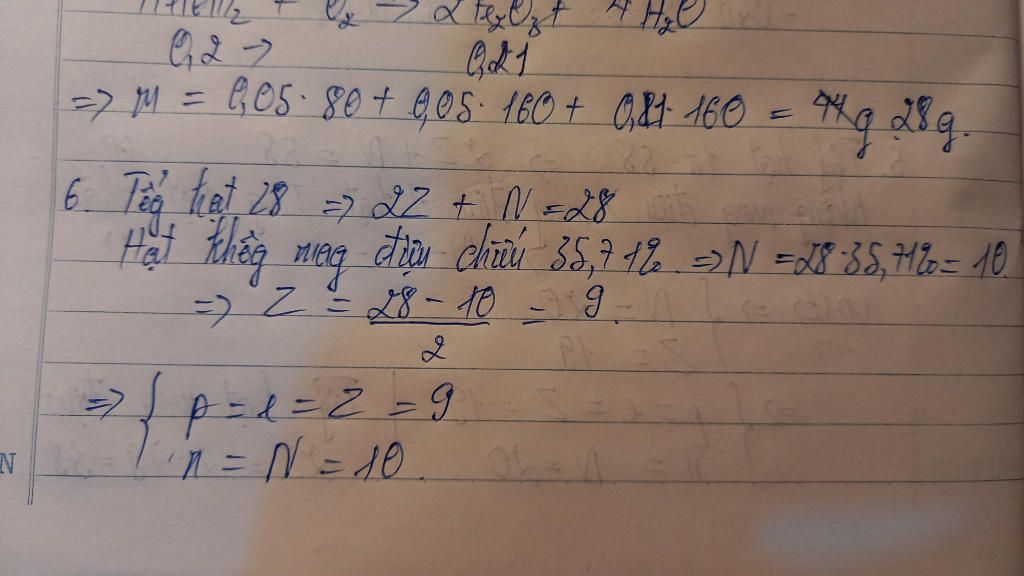 + O₂ → 2Fe₂O₃ + 4H₂O
0,2 → 0,1
=> m = 0,05 · 80 + 0,05 · 160 + 0,1 · 160 = 28g.
6. Tổg hạt 28 => 2Z + N = 28
Hạt khôg mag điện chiếm 35,71% => N = 28·35,71% = 10
=> Z = 28 - 10 / 2 = 9.
=> { p = e = Z = 9
n = N = 10.
N